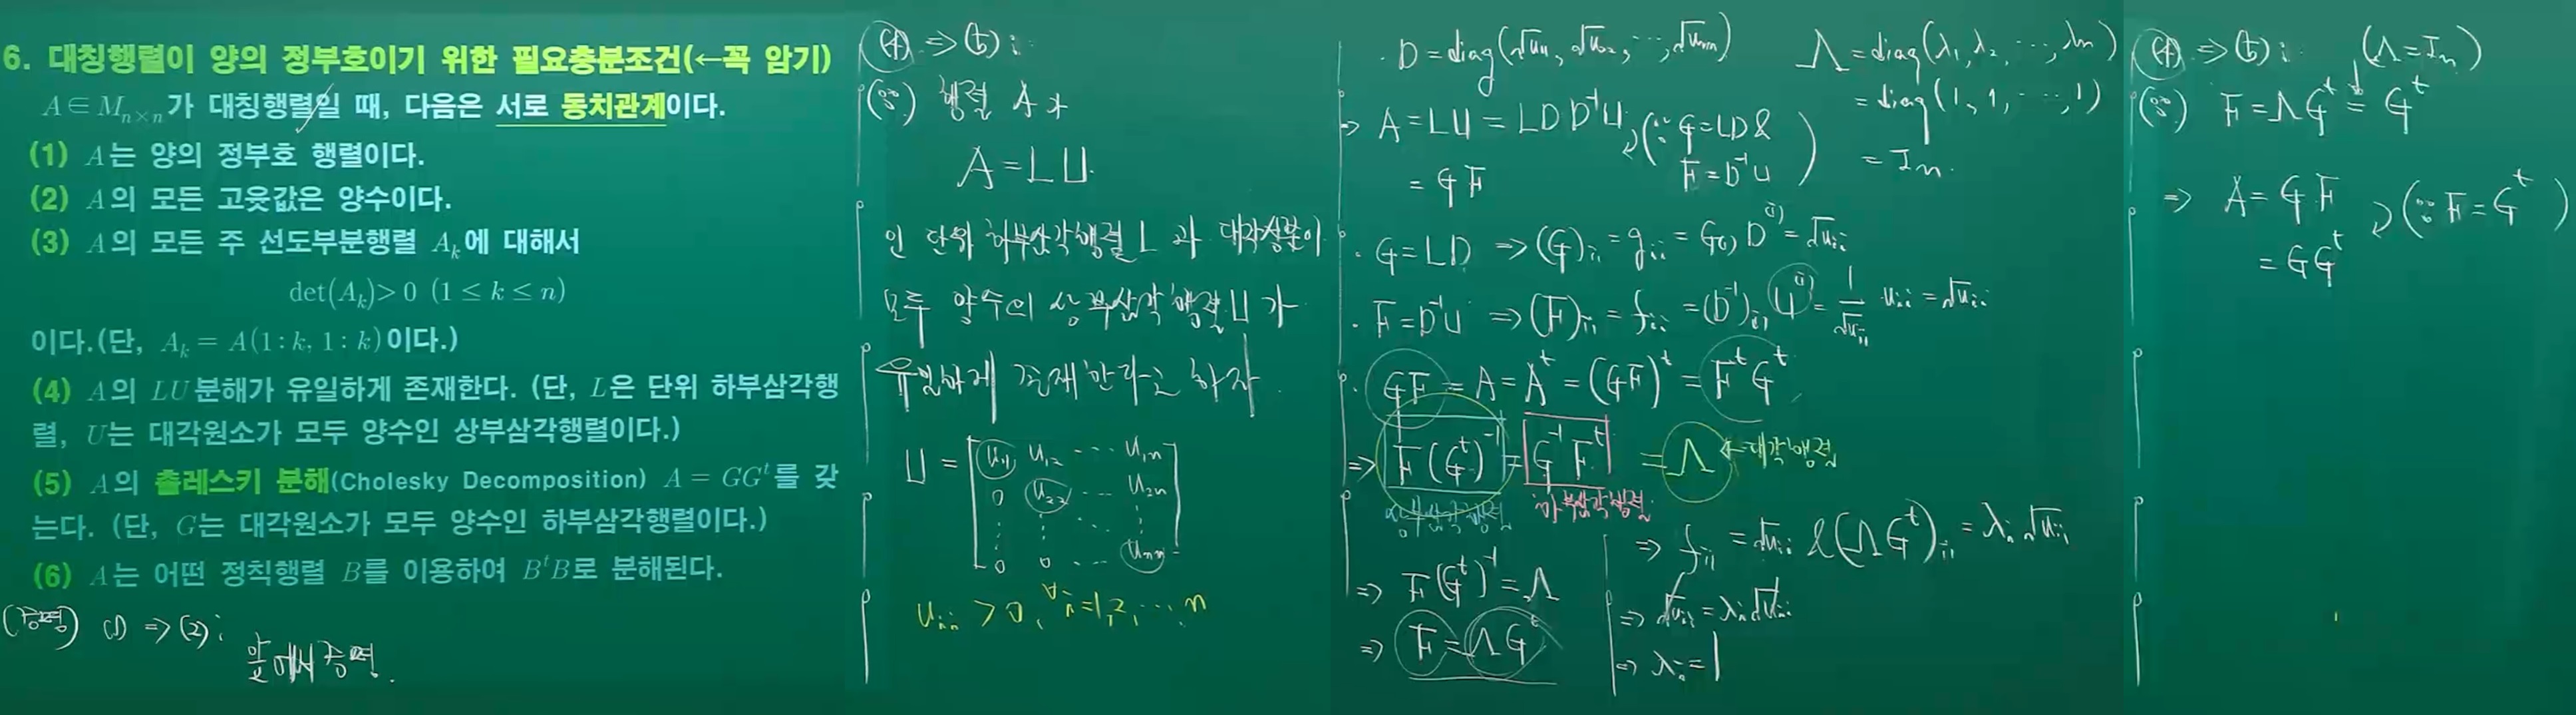 6. 대칭행렬이 양의 정부호이기 위한 필요충분조건(←꼭 암기)
A∈M_{n×n}가 대칭행렬일 때, 다음은 서로 동치관계이다.
(1) A는 양의 정부호 행렬이다.
(2) A의 모든 고윳값은 양수이다.
(3) A의 모든 주 선도부분행렬 A_k에 대해서
det(A_k)>0 (1≤k≤n)
이다.(단, A_k = A(1:k, 1:k)이다.)
(4) A의 LU분해가 유일하게 존재한다. (단, L은 단위 하부삼각행
렬, U는 대각원소가 모두 양수인 상부삼각행렬이다.)
(5) A의 촐레스키 분해(Cholesky Decomposition) A = GG^t를 갖
는다. (단, G는 대각원소가 모두 양수인 하부삼각행렬이다.)
(6) A는 어떤 정칙행렬 B를 이용하여 B^tB로 분해된다.
(증명) (1) ⇒ (2):
앞에서 증명.
(4) ⇒ (5):
(∵) 행렬 A가
A = LU
인 단위 하부삼각행렬 L과 대각성분이
모두 양수인 상부삼각행렬 U가
유일하게 존재한다고 하자.
U = [u_11 u_12 ⋯ u_1n
0 u_22 ⋯ u_2n
⋮ ⋮ ⋱ ⋮
0 0 ⋯ u_nn]
u_ii > 0, ∀i=1,2,⋯,n
· D = diag(√u_11, √u_22, ⋯, √u_nn)
⇒ A = LU = LDD^{-1}U (∵ G=LD & F=D^{-1}U)
= GF
· G = LD ⇒ (G)_ii = g_ii = G_(i) D^(i) = √u_ii
· F = D^{-1}U ⇒ (F)_ii = f_ii = (D^{-1})_(i) U^(i) = 1/√u_ii · u_ii = √u_ii
· GF = A = A^t = (GF)^t = F^t G^t
⇒ F(G^t)^{-1} = G^{-1}F^t = Λ ← 대각행렬
상부삼각행렬 하부삼각행렬
⇒ F(G^t)^{-1} = Λ
⇒ F = ΛG^t
⇒ f_ii = √u_ii & (ΛG^t)_ii = λ_i √u_ii
⇒ √u_ii = λ_i √u_ii
⇒ λ_i = 1
Λ = diag(λ_1, λ_2, ⋯, λ_n)
= diag(1, 1, ⋯, 1)
= I_n.
(4) ⇒ (5): (Λ = I_n)
(∵) F = ΛG^t = G^t
⇒ A = GF (∵ F = G^t)
= GG^t